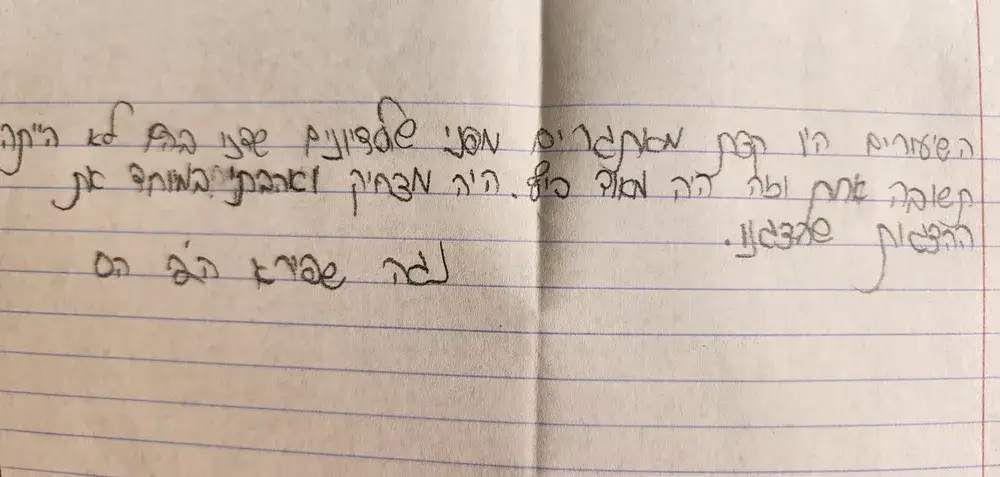 השיעורים היו קצת מאתגרים מפני שלדיונים שדנו בהם לא הייתה
תשובה אחת וזה היה מאוד כיף. היה מצחיק ואהבתי במיוחד את
ההצגות שהצגנו.
נגה שפירא